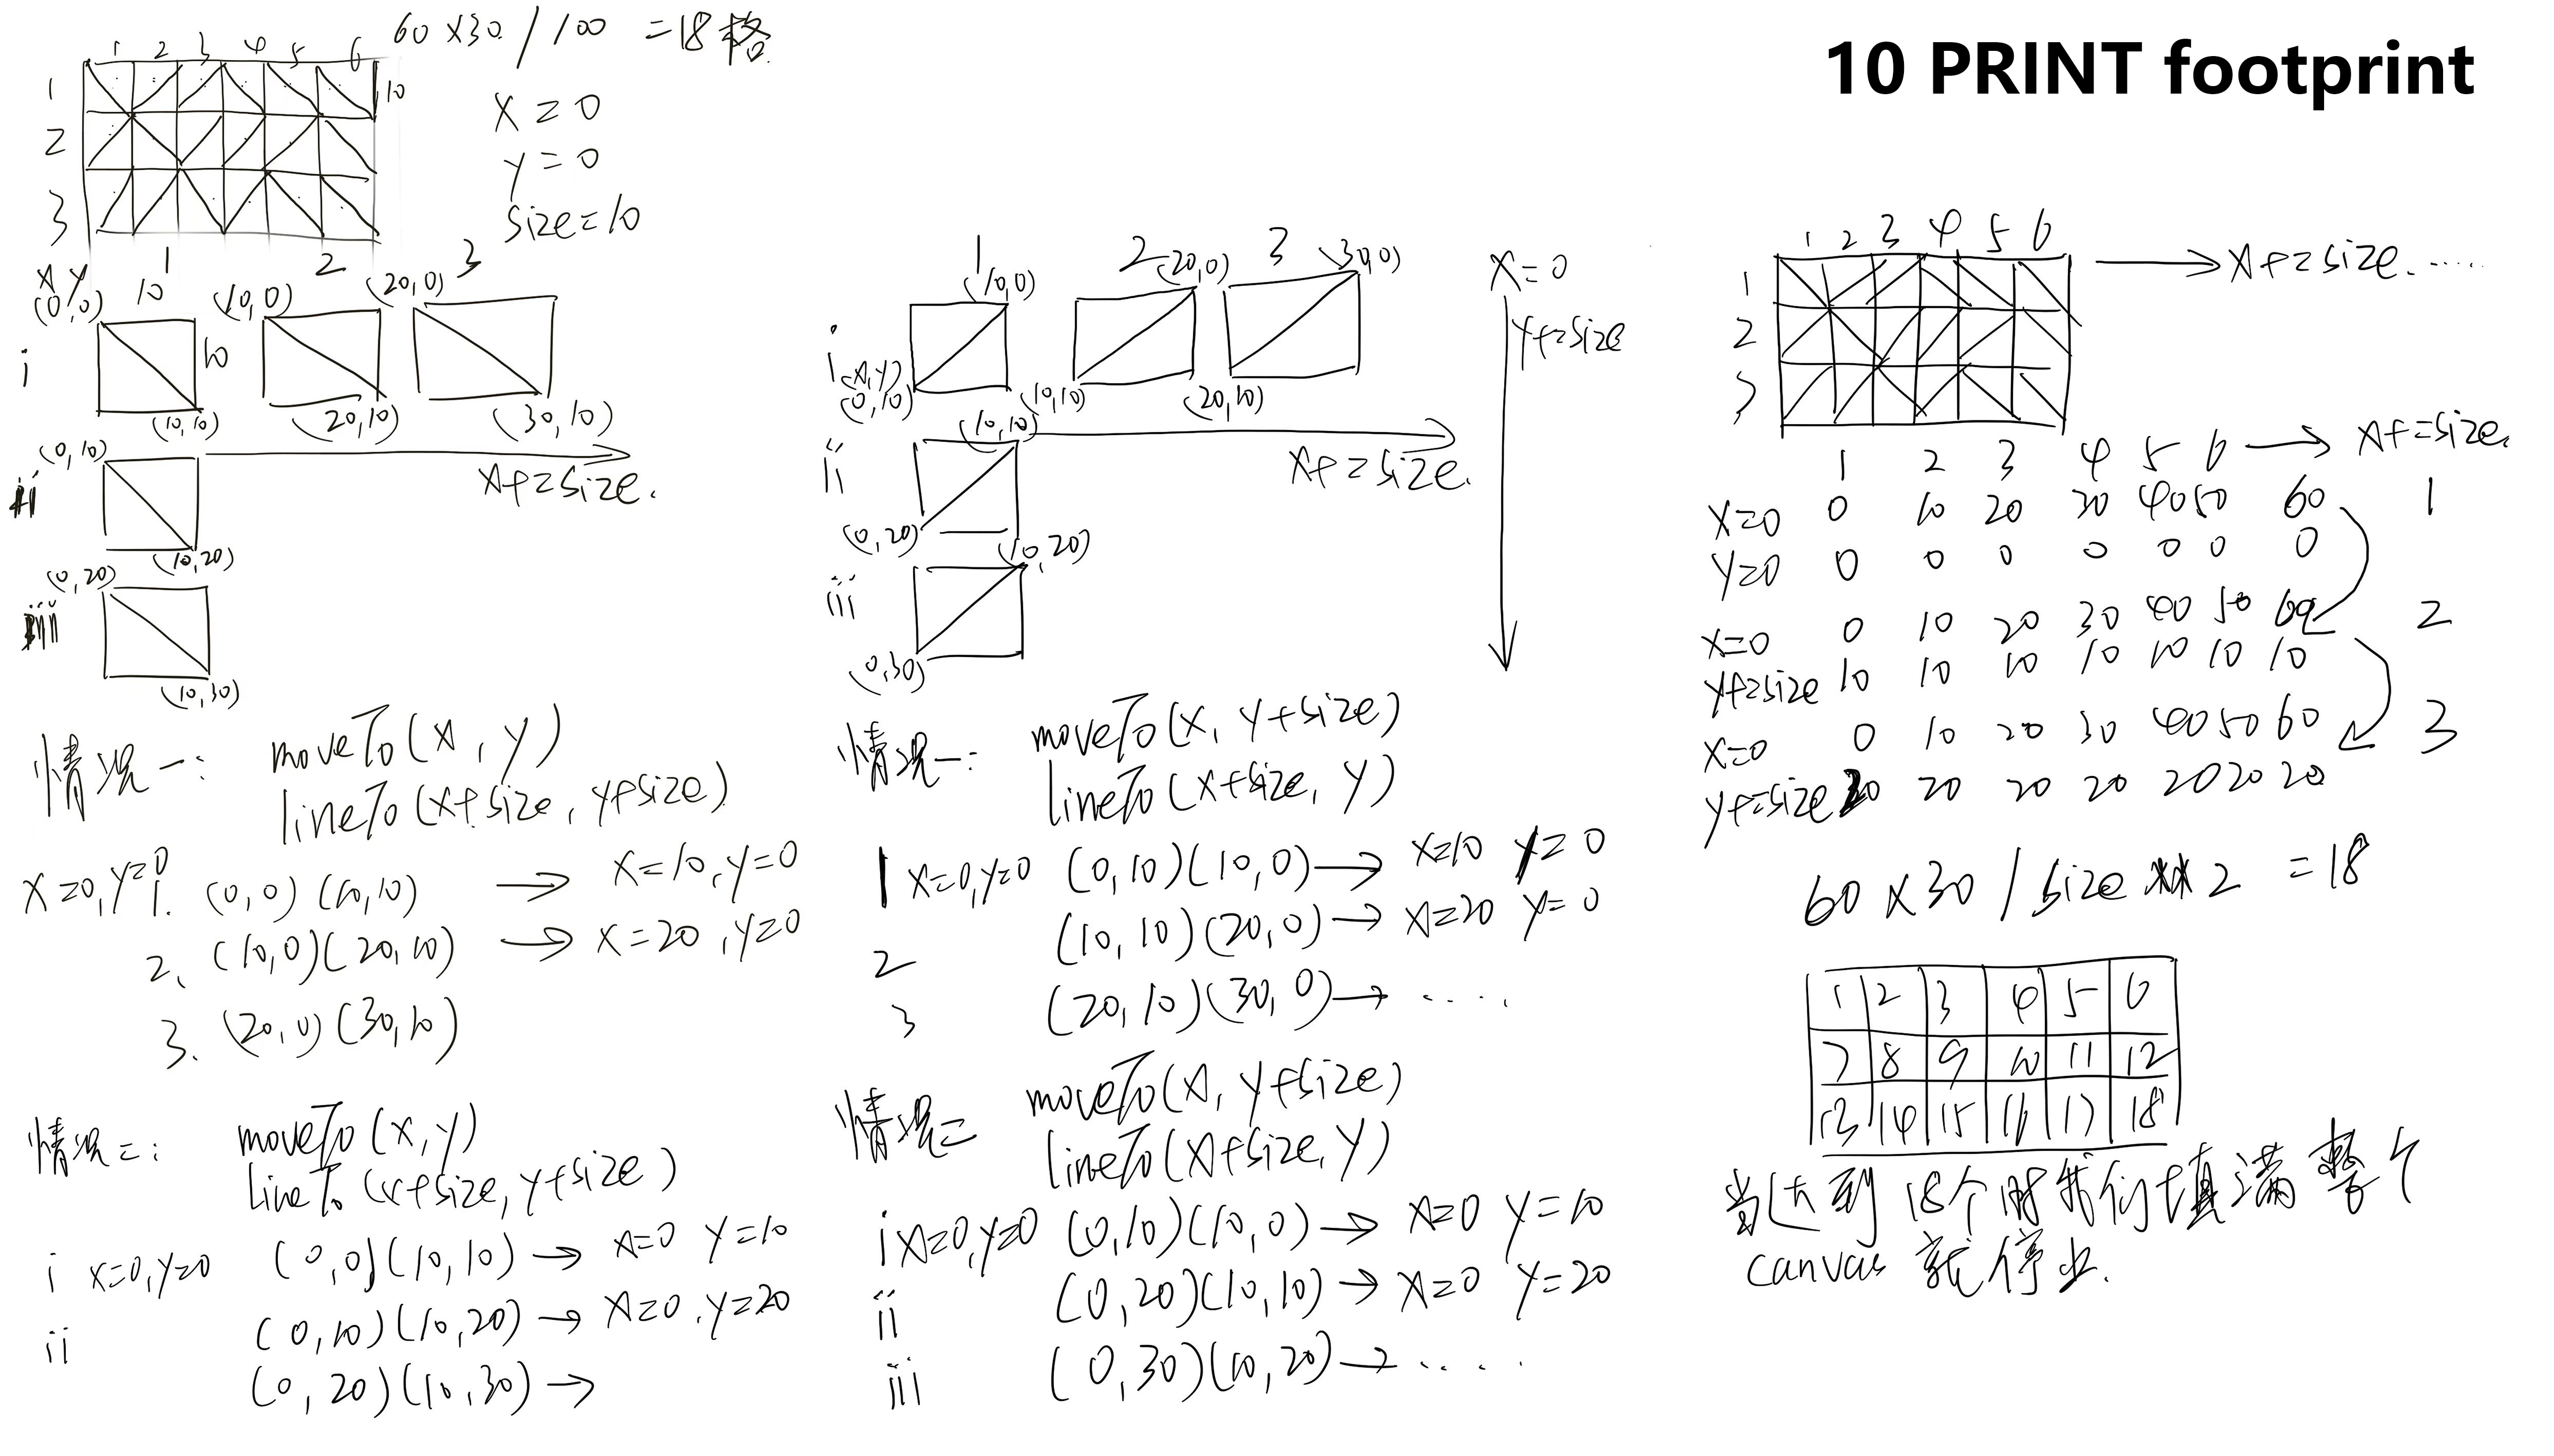 10 PRINT footprint
60 X 30 / 100 = 18 格
1 2 3 4 5 6
1
2
3
10
X = 0
y = 0
size = 10
1 2 3
X Y
(0,0) 10 (10,0) (20,0)
i 10
(10,10) (20,10) (30,10)
(0,10)
ii
x+=size.
(10,20)
(0,20)
iii
(10,30)
情况一: moveTo(x, y)
lineTo(x+size, y+size)
x=0,y=0 1. (0,0) (10,10) → x=10,y=0
2. (10,0)(20,10) → x=20,y=0
3. (20,0)(30,10)
情况二: moveTo(x,y)
lineTo(x+size, y+size)
i x=0,y=0 (0,0)(10,10) → x=0 y=10
ii (0,10)(10,20) → x=0,y=20
(0,20)(10,30) →
1 2 3
(10,0) (20,0) (30,0)
i
(x,y)
(0,10) (10,10) (20,10)
(10,10)
ii
x+=size.
(0,20)
(10,20)
iii
(0,30)
x=0
y+=size
情况一: moveTo(x, y+size)
lineTo(x+size, y)
1 x=0,y=0 (0,10)(10,0) → x=10 y=0
2 (10,10)(20,0) → x=20 y=0
3 (20,10)(30,0) → ....
情况二 moveTo(x, y+size)
lineTo(x+size, y)
i x=0,y=0 (0,10)(10,0) → x=0 y=10
ii (0,20)(10,10) → x=0 y=20
iii (0,30)(10,20) → ....
1 2 3 4 5 6
1
2
3
→ x+=size.....
1 2 3 4 5 6 → x+=size.
x=0 0 10 20 30 40 50 60 1
y=0 0 0 0 0 0 0 0
x=0 0 10 20 30 40 50 60 2
y+=size 10 10 10 10 10 10 10
x=0 0 10 20 30 40 50 60 3
y+=size 20 20 20 20 20 20 20
60 x 30 / size ** 2 = 18
1 2 3 4 5 6
7 8 9 10 11 12
13 14 15 16 17 18
当达到 18个时我们填满整个
canvas 就停止.